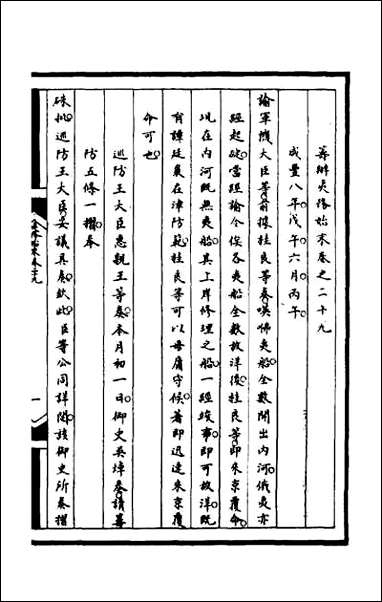 籌辦夷務始末卷之二十九
咸豐八年戊午六月丙午
諭軍機大臣等前據桂良等奏嘆咈夷船全數開出內河俄夷亦
經起碇當經諭令俟各夷船全數放洋後桂良等即來京覆命
現在內河既無夷船其上岸修理之船一經竣事即可放洋既
有譚廷襄在津防範桂良等可以毋庸守候著即迅速來京覆
命可也
巡防王大臣惠親王等奏本月初一日御史吳焯奏請籌
防五條一摺奉
硃批巡防王大臣妥議具奏欽此臣等公同詳閱該御史所奏摺
一